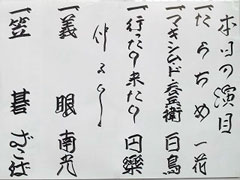 本日の演目
一、たらちめ 一花
一、マキシム・ド・呑兵衛 白鳥
一、行ったり来たり 円樂
仲入り
一、義眼 南光
一、笠碁 ざこば